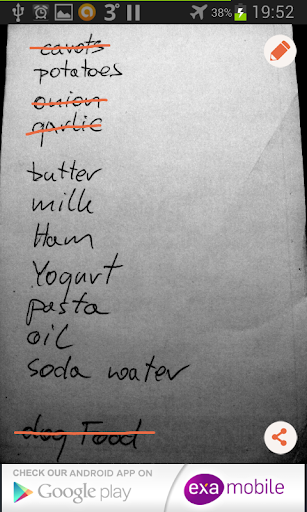 3°
38%
19:52
cavots
potatoes
onion
garlic
butter
milk
Ham
Yogurt
pasta
oil
soda water
dog Food
CHECK OUR ANDROID APP ON
Google play
exa mobile